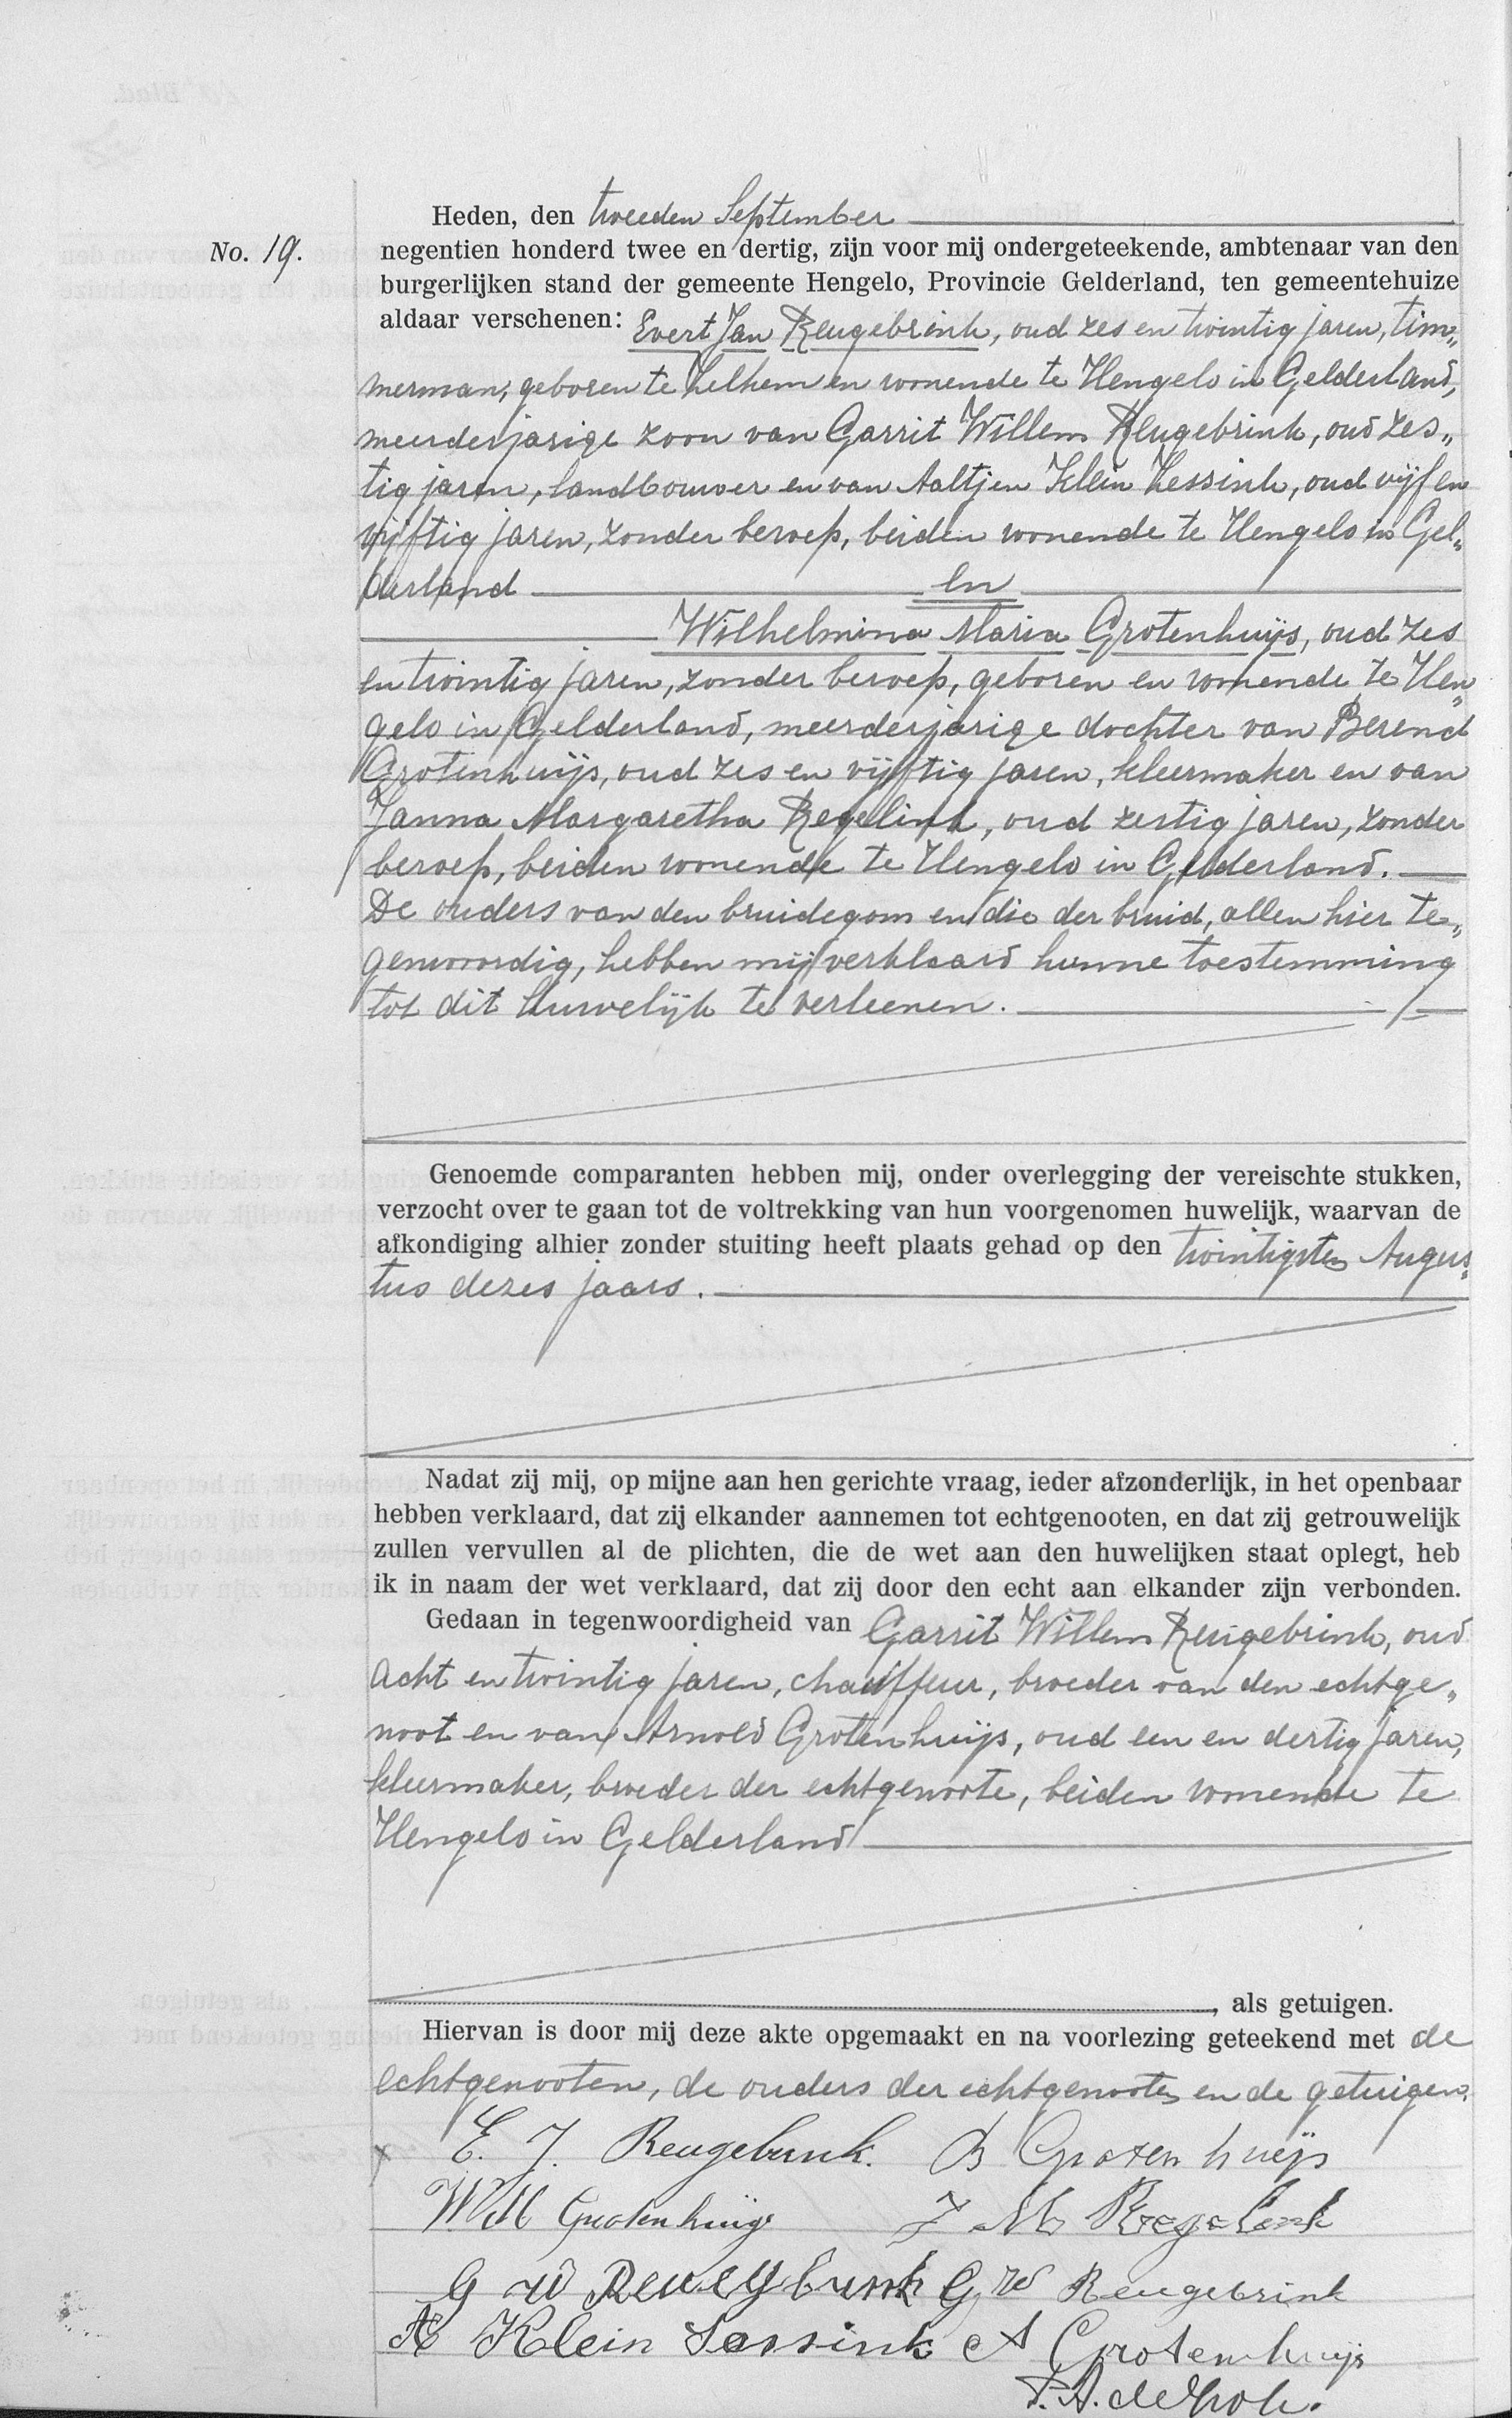 Heden, den tweeden September
No. 19.
negentien honderd twee en dertig, zijn voor mij ondergeteekende, ambtenaar van den
burgerlijken stand der gemeente Hengelo, Provincie Gelderland, ten gemeentehuize
aldaar verschenen: Evert Jan Reugebrink, oud zes en twintig jaren, tim„
merman, geboren te Zelhem en wonende te Hengelo in Gelderland,
meerderjarige zoon van Garrit Willem Reugebrink, oud zes„
tig jaren, landbouwer en van Aaltjen Klein Lessink, oud vijf en
vijftig jaren, zonder beroep, beiden wonende te Hengelo in Gel„
derland en
Wilhelmina Maria Grotenhuijs, oud zes
en twintig jaren, zonder beroep, geboren en wonende te Hen„
gelo in Gelderland, meerderjarige dochter van Berend
Grotenhuijs, oud zes en vijftig jaren, kleermaker en van
Janna Margaretha Regelink, oud zestig jaren, zonder
beroep, beiden wonende te Hengelo in Gelderland.
De ouders van den bruidegom en die der bruid, allen hier te„
genwoordig, hebben mij verklaard hunne toestemming
tot dit huwelijk te verleenen.
Genoemde comparanten hebben mij, onder overlegging der vereischte stukken,
verzocht over te gaan tot de voltrekking van hun voorgenomen huwelijk, waarvan de
afkondiging alhier zonder stuiting heeft plaats gehad op den twintigsten Augus„
tus dezes jaars.
Nadat zij mij, op mijne aan hen gerichte vraag, ieder afzonderlijk, in het openbaar
hebben verklaard, dat zij elkander aannemen tot echtgenooten, en dat zij getrouwelijk
zullen vervullen al de plichten, die de wet aan den huwelijken staat oplegt, heb
ik in naam der wet verklaard, dat zij door den echt aan elkander zijn verbonden.
Gedaan in tegenwoordigheid van Garrit Willem Reugebrink, oud
acht en twintig jaren, chauffeur, broeder van den echtge„
noot en van Arnold Grotenhuijs, oud een en dertig jaren,
kleermaker, broeder der echtgenoote, beiden wonende te
Hengelo in Gelderland
, als getuigen.
Hiervan is door mij deze akte opgemaakt en na voorlezing geteekend met de
echtgenooten, de ouders der echtgenooten en de getuigen.
E. J. Reugebrink. B Grotenhuijs
W M Grotenhuijs J M Regelink
G W Reugebrink G W Reugebrink
A Klein Lessink A Grotenhuijs